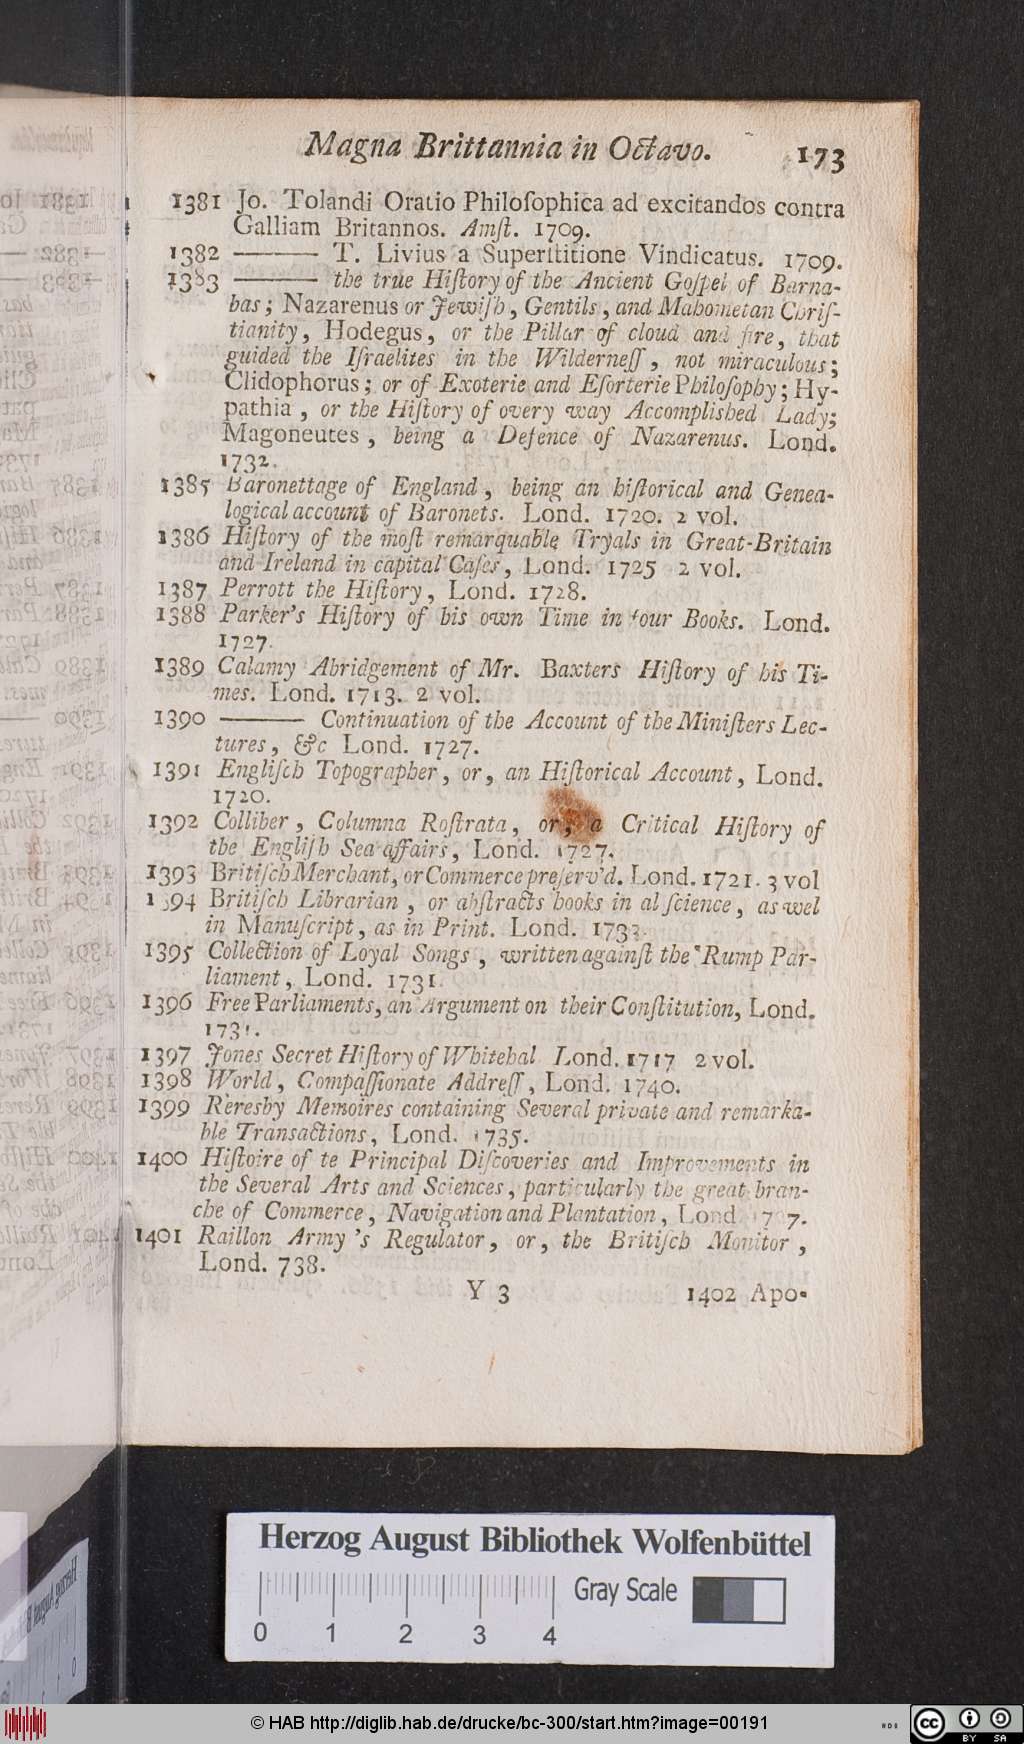 Magna Brittannia in Octavo. 173
1381 Jo. Tolandi Oratio Philoſophica ad excitandos contra
Galliam Britannos. Amſt. 1709.
1382 ——— T. Livius a Superſtitione Vindicatus. 1709.
1383 ——— the true Hiſtory of the Ancient Goſpel of Barna-
bas; Nazarenus or Jewiſh, Gentils, and Mahometan Chriſ-
tianity, Hodegus, or the Pillar of cloud and fire, that
guided the Iſraelites in the Wilderneſſ, not miraculous;
Clidophorus; or of Exoterie and Eſorterie Philoſophy; Hy-
pathia, or the Hiſtory of overy way Accomplished Lady;
Magoneutes, being a Defence of Nazarenus. Lond.
1732.
1385 Baronettage of England, being an hiſtorical and Genea-
logical account of Baronets. Lond. 1720. 2 vol.
1386 Hiſtory of the moſt remarquable Tryals in Great-Britain
and Ireland in capital Caſes, Lond. 1725 2 vol.
1387 Perrott the Hiſtory, Lond. 1728.
1388 Parker's Hiſtory of his own Time in four Books. Lond.
1727.
1389 Calamy Abridgement of Mr. Baxters Hiſtory of his Ti-
mes. Lond. 1713. 2 vol.
1390 ——— Continuation of the Account of the Miniſters Lec-
tures, &c Lond. 1727.
1391 Engliſch Topographer, or, an Hiſtorical Account, Lond.
1720.
1392 Colliber, Columna Roſtrata, or, a Critical Hiſtory of
the Engliſh Sea affairs, Lond. 1727.
1393 Britiſch Merchant, or Commerce preſerv'd. Lond. 1721. 3 vol
1394 Britiſch Librarian, or abſtracts books in al ſcience, as wel
in Manuſcript, as in Print. Lond. 1733.
1395 Collection of Loyal Songs, written againſt the Rump Par-
liament, Lond. 1731.
1396 Free Parliaments, an Argument on their Conſtitution, Lond.
1731.
1397 Jones Secret Hiſtory of Whitehal Lond. 1717 2 vol.
1398 World, Compaſſionate Addreſſ, Lond. 1740.
1399 Reresby Memoires containing Several private and remarka-
ble Transactions, Lond. 1735.
1400 Hiſtoire of te Principal Diſcoveries and Improvements in
the Several Arts and Sciences, particularly the great bran-
che of Commerce, Navigation and Plantation, Lond
1401 Raillon Army 's Regulator, or, the Britiſch Monitor,
Lond. 738.
Y 3 1402 Apo-
Herzog August Bibliothek Wolfenbüttel
Gray Scale
0 1 2 3 4
© HAB http://diglib.hab.de/drucke/bc-300/start.htm?image=00191
cc BY SA